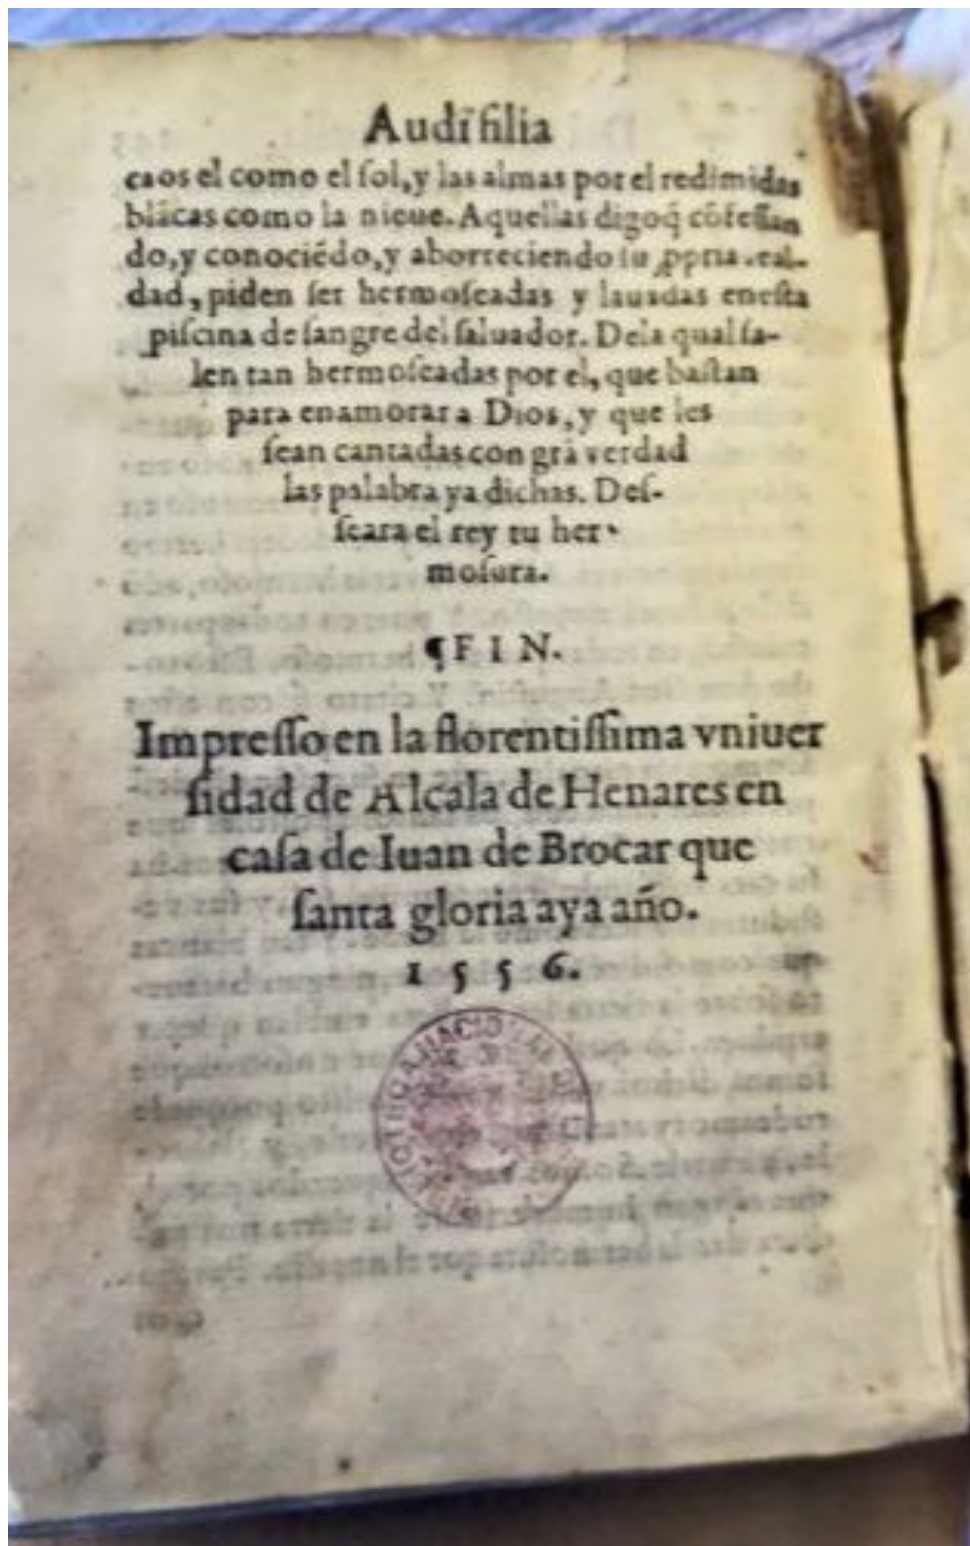 Audī filia
caos el como el ſol, y las almas por el redimidas
blācas como la nieue. Aquellas digo q̄ cōfeſſan
do, y conociēdo, y aborreciendo ſu ꝓpria feal-
dad, piden ſer hermoſeadas y lauadas eneſta
piſcina de ſangre del ſaluador. Dela qual ſa-
len tan hermoſeadas por el, que baſtan
para enamorar a Dios, y que les
ſean cantadas con grā verdad
las palabra ya dichas. Deſ-
ſeara el rey tu her-
moſura.
¶ F I N.
Impreſſo en la florentiſſima vniuer
ſidad de Alcala de Henares en
caſa de Iuan de Brocar que
ſanta gloria aya año.
1 5 5 6.
BIBLIOTECA NACIONAL DE